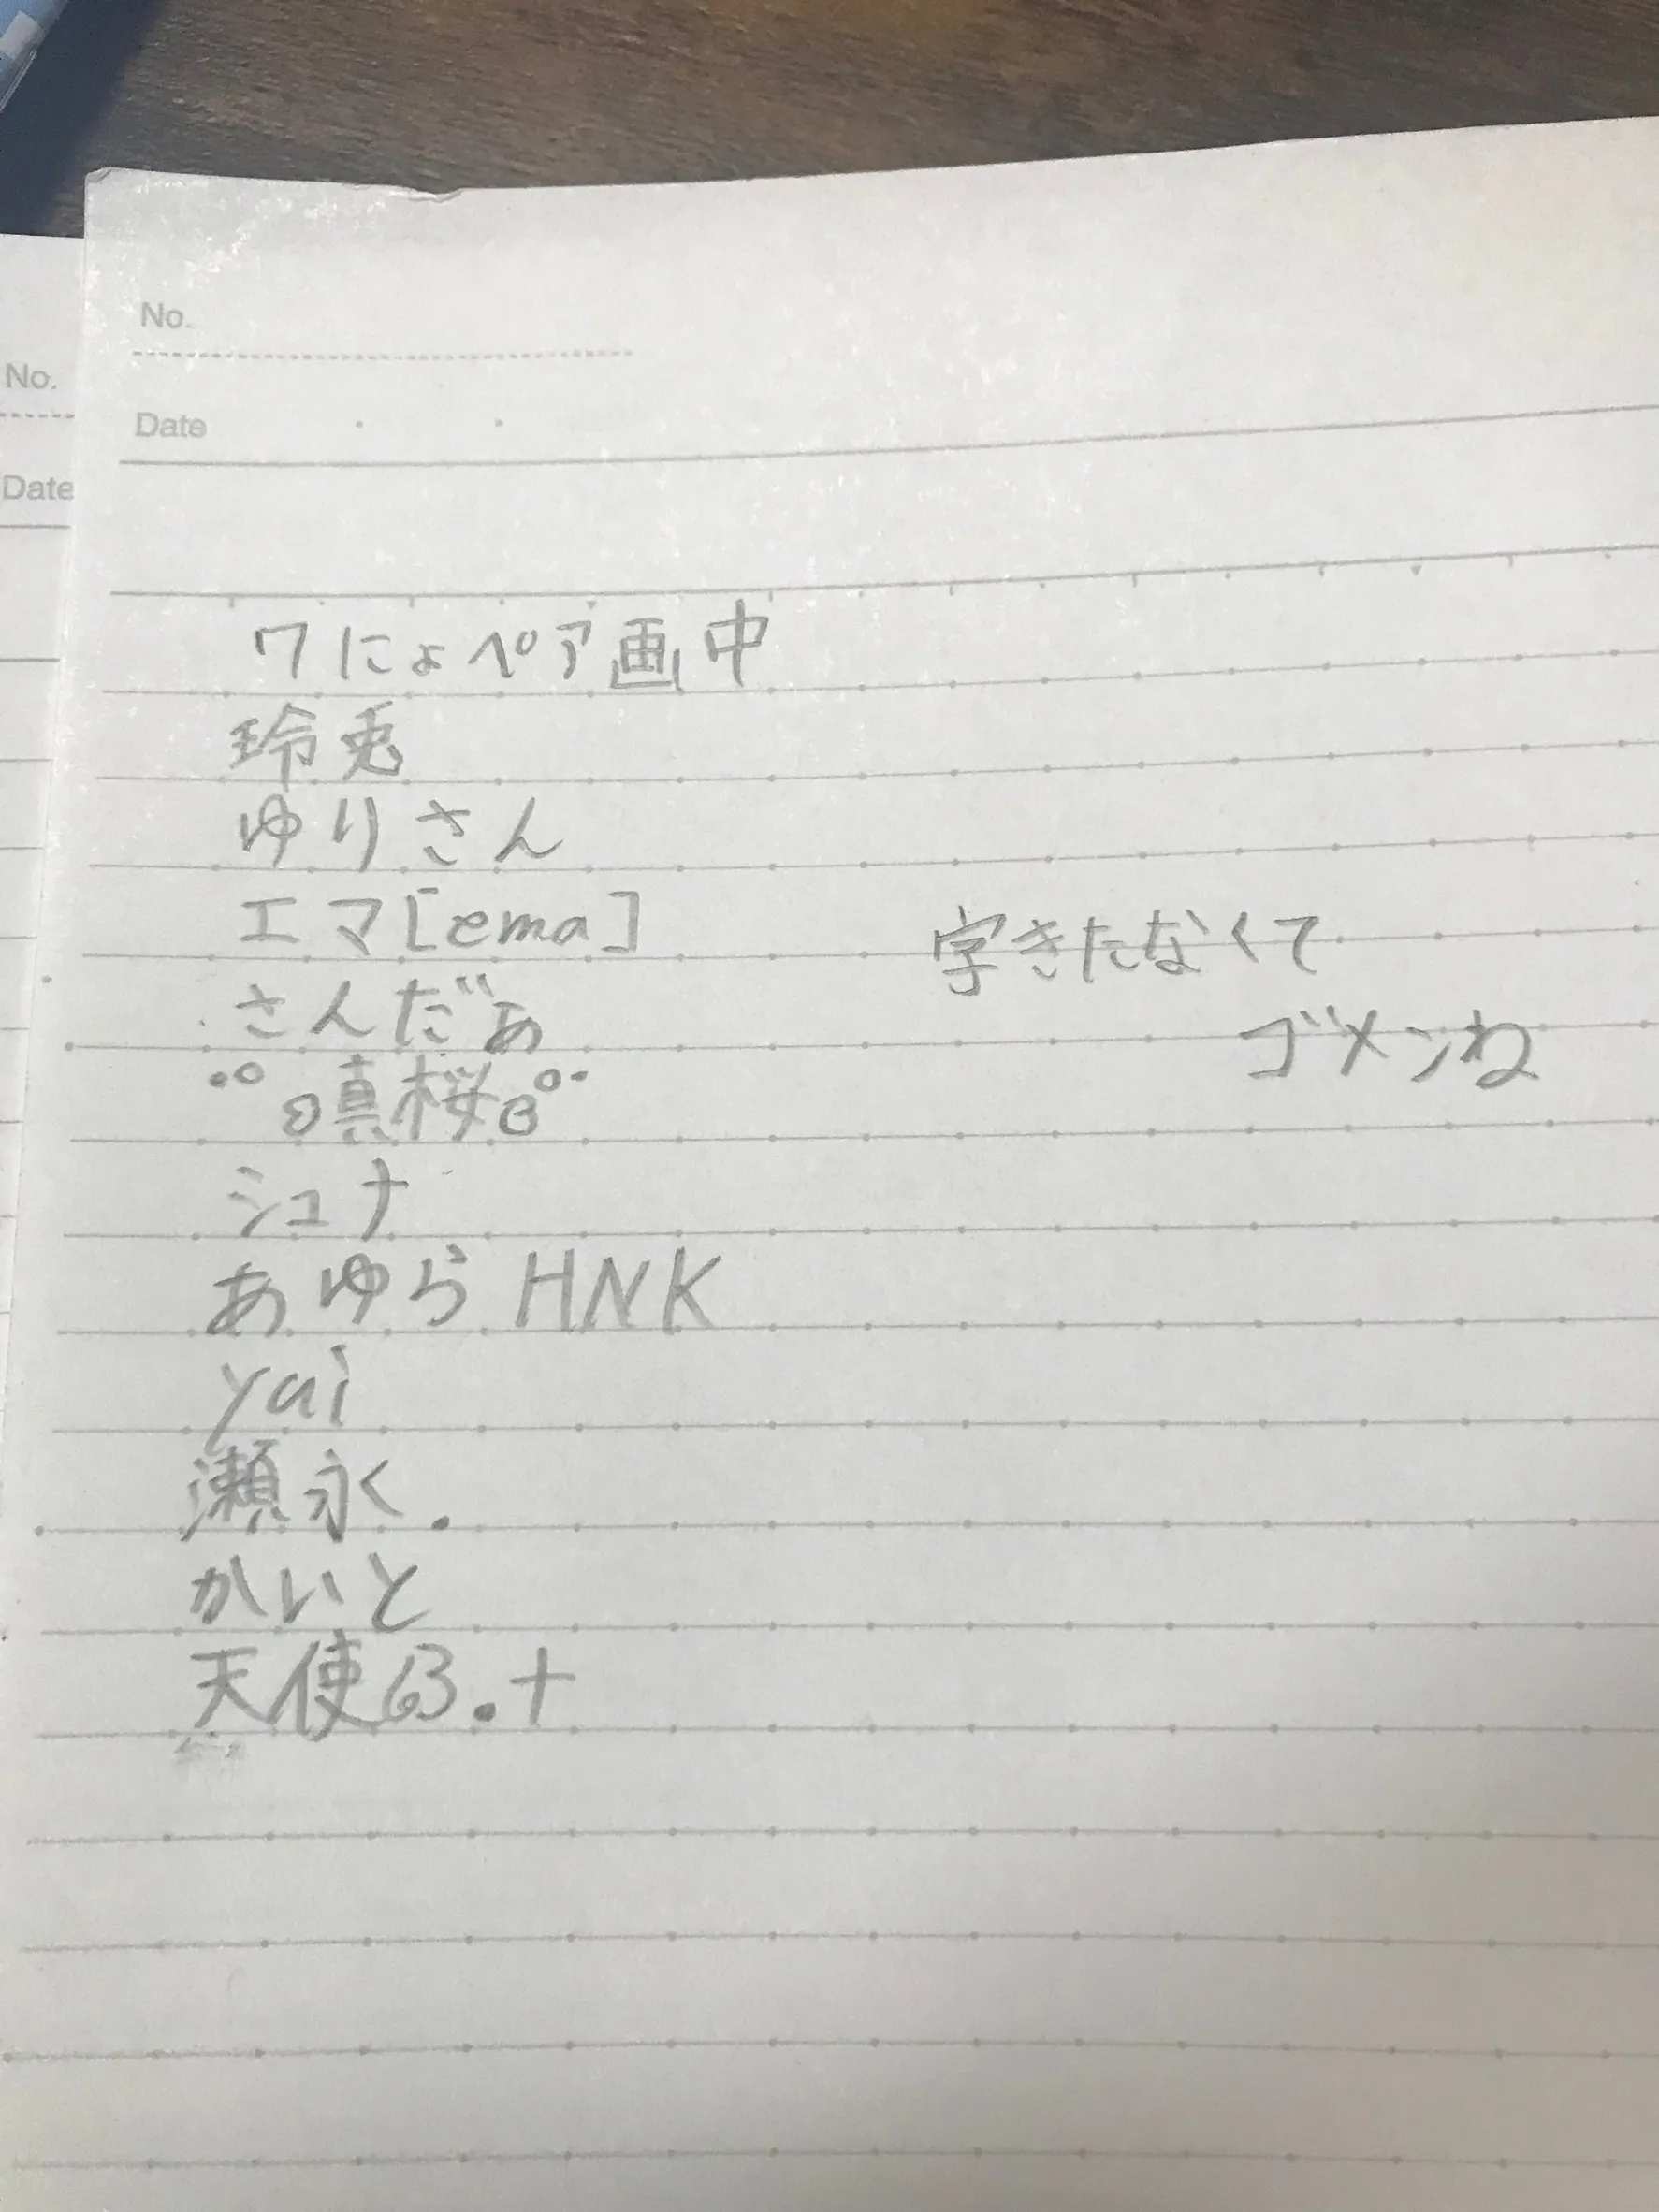 No.
Date
No.
Date
7にょペア画中
玲兎
ゆりさん
エマ[ema]
さんだぁ
真桜
シュナ
あゆら HNK
yui
瀬永.
かいと
天使63.十
字きたなくて
ゴメンね